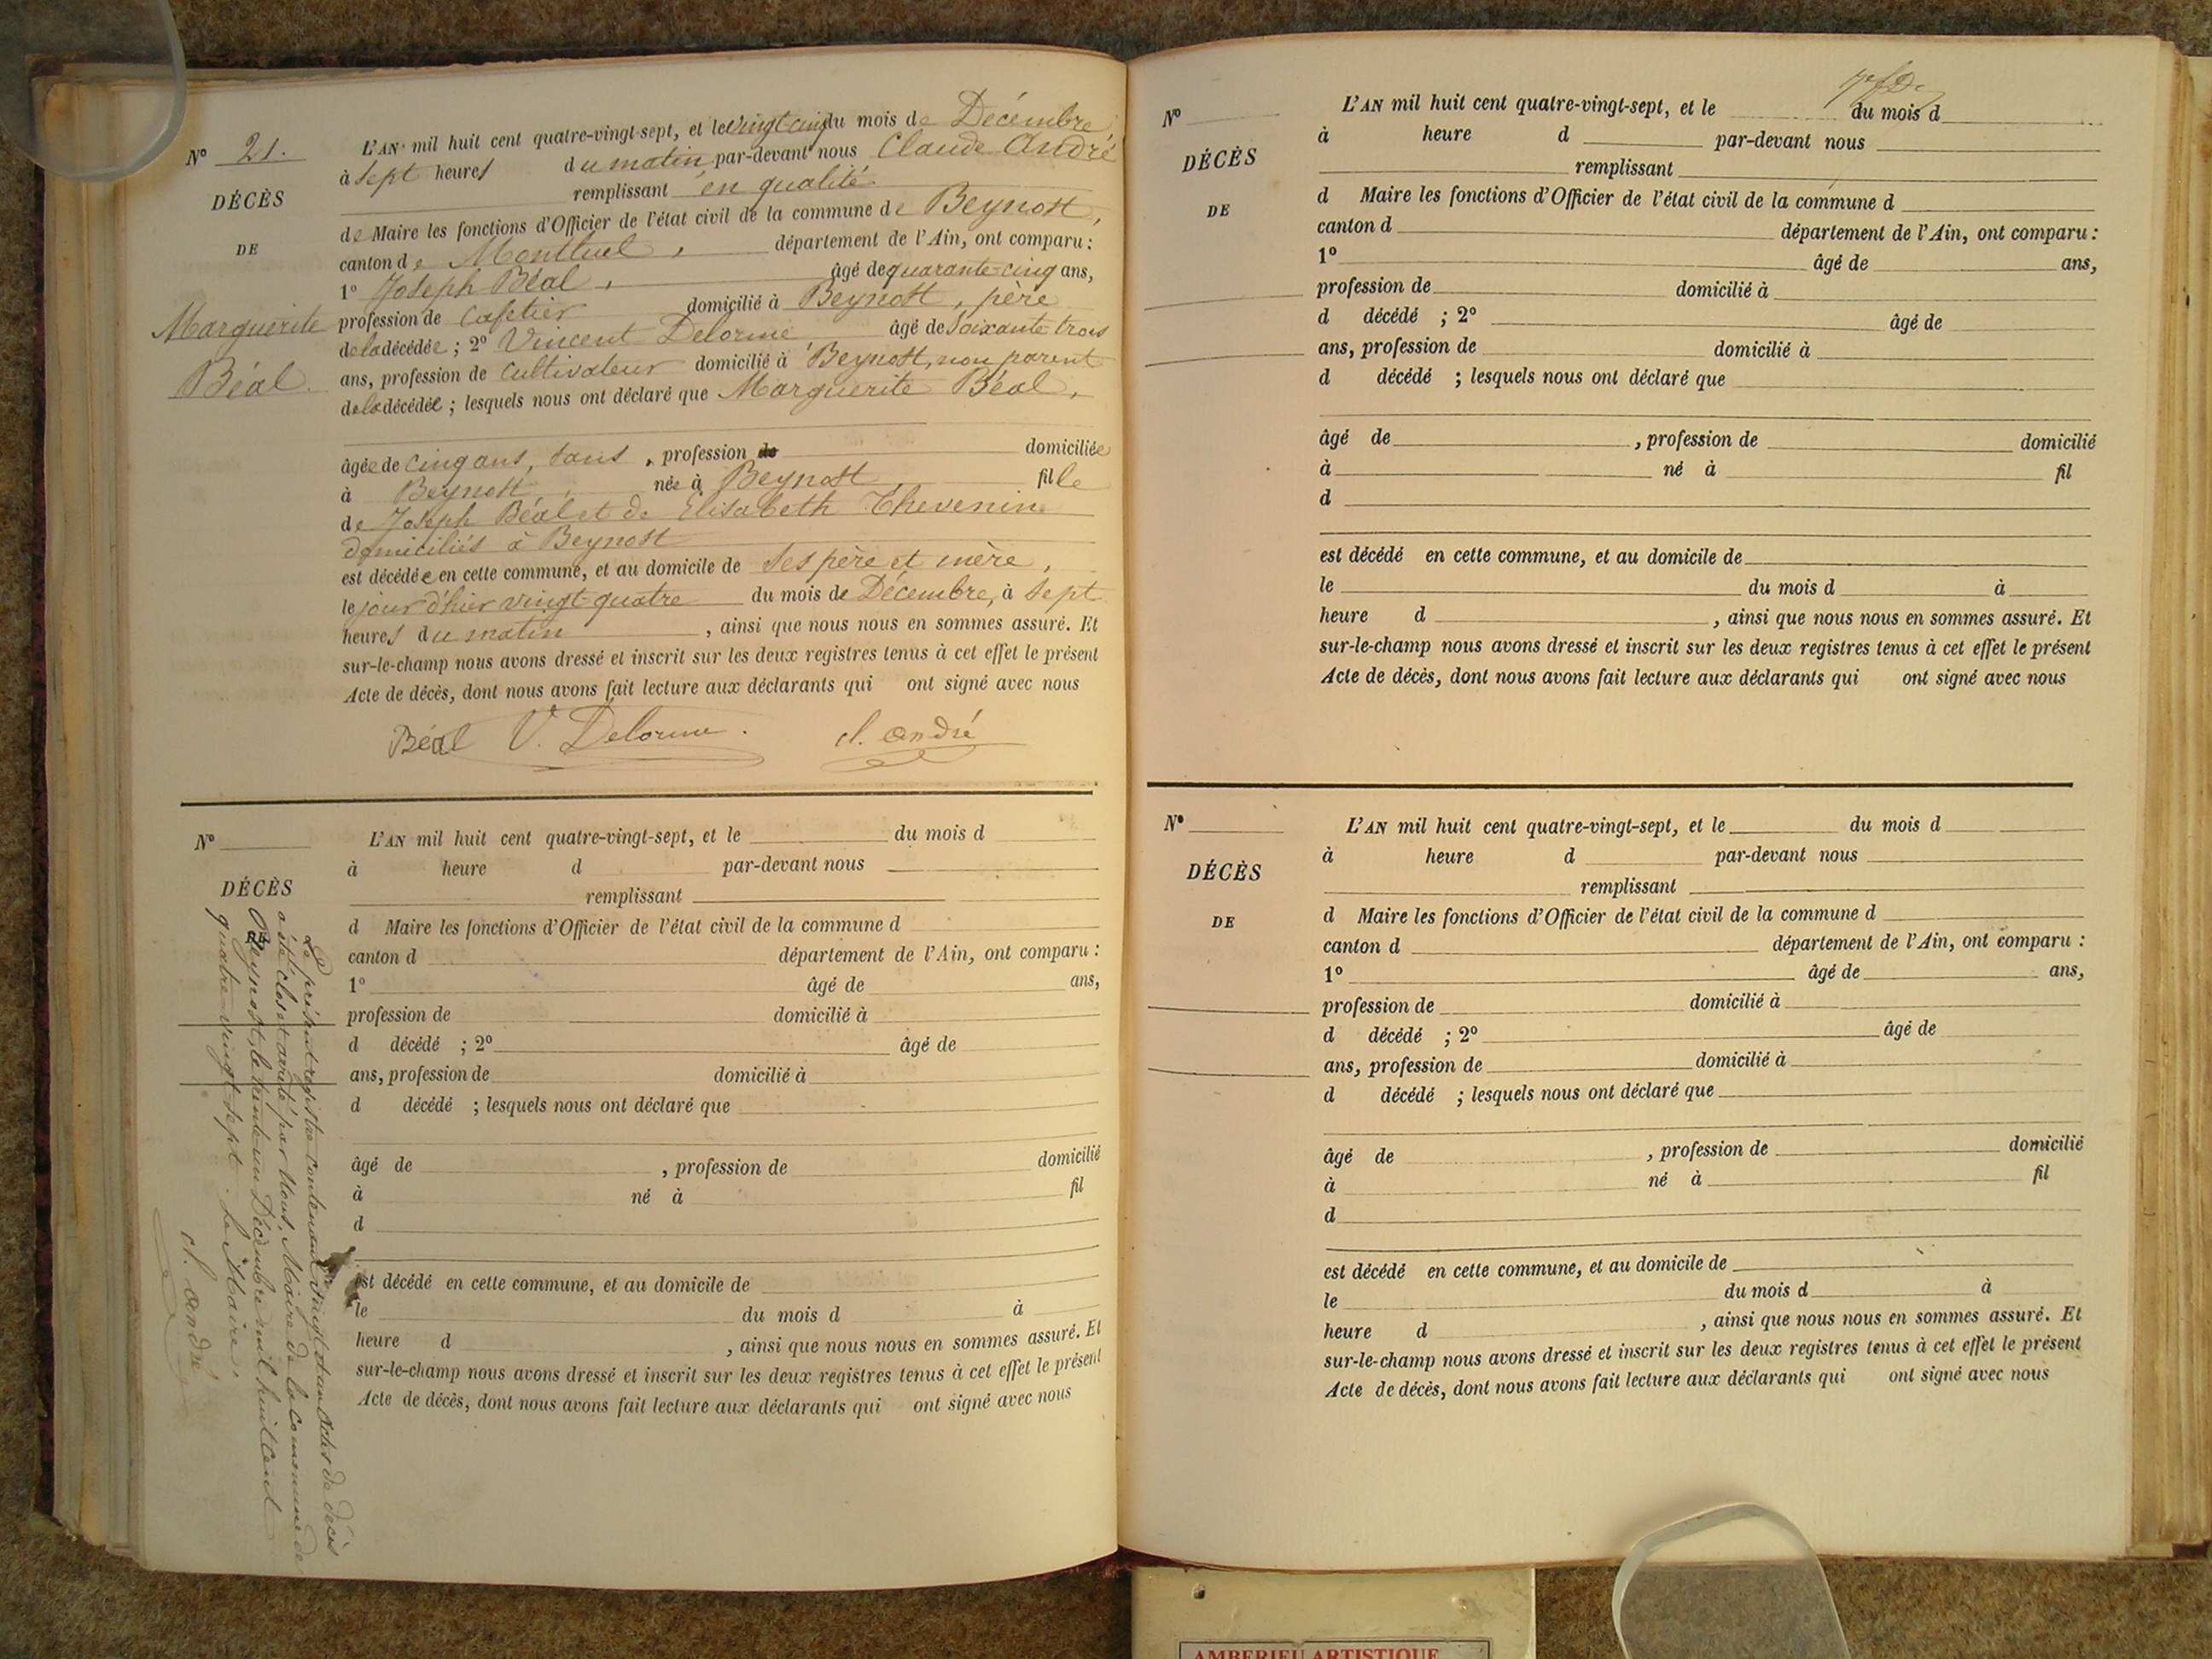 N° 21.
DÉCÈS
DE
Marguerite
Béal.
L'AN mil huit cent quatre-vingt-sept, et le vingt cinq du mois de Décembre,
à sept heures du matin par-devant nous Claude André
remplissant en qualité
de Maire les fonctions d'Officier de l'état civil de la commune de Beynost,
canton de Montluel, département de l'Ain, ont comparu :
1° Joseph Béal, âgé de quarante-cinq ans,
profession de cafetier domicilié à Beynost, père
de la décédée ; 2° Vincent Delorme âgé de soixante-trois
ans, profession de cultivateur domicilié à Beynost, non parent
de la décédée ; lesquels nous ont déclaré que Marguerite Béal,
âgée de cinq ans, sans, profession de domiciliée
à Beynost, née à Beynost, fille
de Joseph Béal et de Elisabeth Thevenin
domiciliés à Beynost
est décédée en cette commune, et au domicile de ses père et mère,
le jour d'hier vingt-quatre du mois de Décembre, à sept
heures du matin, ainsi que nous nous en sommes assuré. Et
sur-le-champ nous avons dressé et inscrit sur les deux registres tenus à cet effet le présent
Acte de décès, dont nous avons fait lecture aux déclarants qui ont signé avec nous
Béal V. Delorme. cl. André
N°
DÉCÈS
L'AN mil huit cent quatre-vingt-sept, et le du mois d
à heure d par-devant nous
remplissant
d Maire les fonctions d'Officier de l'état civil de la commune d
canton d département de l'Ain, ont comparu :
1° âgé de ans,
profession de domicilié à
d décédé ; 2° âgé de
ans, profession de domicilié à
d décédé ; lesquels nous ont déclaré que
âgé de , profession de domicilié
à né à fil
d
est décédé en cette commune, et au domicile de
le du mois d à
heure d , ainsi que nous nous en sommes assuré. Et
sur-le-champ nous avons dressé et inscrit sur les deux registres tenus à cet effet le présent
Acte de décès, dont nous avons fait lecture aux déclarants qui ont signé avec nous
Le présent registre contenant vingt et un actes de décès
a été clos et arrêté par Nous, Maire de la commune de
Beynost, le trente un Décembre mil huit cent
quatre-vingt-sept. Le Maire,
cl. André
N°
DÉCÈS
DE
L'AN mil huit cent quatre-vingt-sept, et le du mois d
à heure d par-devant nous
remplissant
d Maire les fonctions d'Officier de l'état civil de la commune d
canton d département de l'Ain, ont comparu :
1° âgé de ans,
profession de domicilié à
d décédé ; 2° âgé de
ans, profession de domicilié à
d décédé ; lesquels nous ont déclaré que
âgé de , profession de domicilié
à né à fil
d
est décédé en cette commune, et au domicile de
le du mois d à
heure d , ainsi que nous nous en sommes assuré. Et
sur-le-champ nous avons dressé et inscrit sur les deux registres tenus à cet effet le présent
Acte de décès, dont nous avons fait lecture aux déclarants qui ont signé avec nous
N°
DÉCÈS
DE
L'AN mil huit cent quatre-vingt-sept, et le du mois d
à heure d par-devant nous
remplissant
d Maire les fonctions d'Officier de l'état civil de la commune d
canton d département de l'Ain, ont comparu :
1° âgé de ans,
profession de domicilié à
d décédé ; 2° âgé de
ans, profession de domicilié à
d décédé ; lesquels nous ont déclaré que
âgé de , profession de domicilié
à né à fil
d
est décédé en cette commune, et au domicile de
le du mois d à
heure d , ainsi que nous nous en sommes assuré. Et
sur-le-champ nous avons dressé et inscrit sur les deux registres tenus à cet effet le présent
Acte de décès, dont nous avons fait lecture aux déclarants qui ont signé avec nous
AMBERIEU ARTISTIQUE